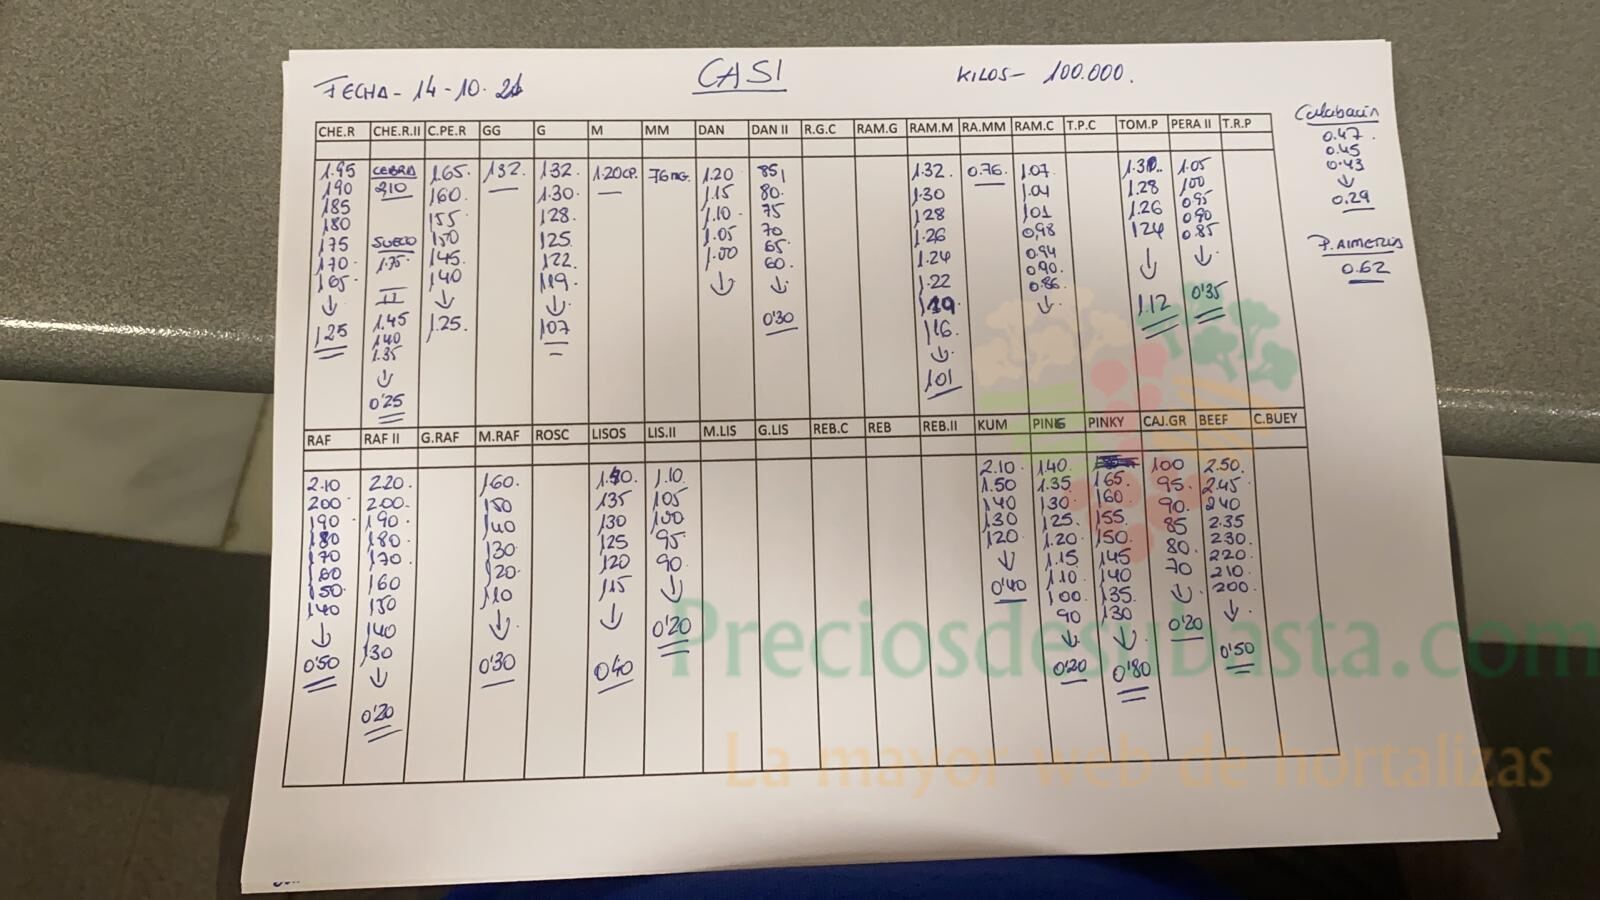 FECHA - 14-10-21 CASI KILOS- 100.000.
CHE.R CHE.R.II C.PE.R GG G M MM DAN DAN II R.G.C RAM.G RAM.M RA.MM RAM.C T.P.C TOM.P PERA II T.R.P
1.95 190 185 180 175 170 165 ↓ 1.25
CEBRA 210 SUELO 1.75 II 1.45 140 1.35 ↓ 0'25
1.65 160 155 150 145 140 ↓ 1.25.
132
132. 1.30 128. 125 122 119 ↓ 107
1.20CP.
76MG.
1.20 1.15 1.10 1.05 1.00 ↓
85 80. 75 70 65 60. ↓ 0'30
1.32. 1.30 128 1.26 1.24 1.22 119 116 ↓ 101
0.76
107 1.04 101 0,98 0.94 0.90 0.86 ↓
1.28 1.26 124 ↓ 1.12
1.05 100 0.95 0.90 0.85 ↓ 0'35
Calabacin
0.47
0.45
0.43
↓
0.29
P. ALMERIA
0.62
RAF RAF II G.RAF M.RAF ROSC LISOS LIS.II M.LIS G.LIS REB.C REB REB.II KUM PING PINKY CAJ.GR BEEF C.BUEY
2.10 200 190 180 170 160 150 140 ↓ 0'50
220 200 190 180 170 160 150 140 130 ↓ 0'20
160. 150 140 130 120 110 ↓ 0'30
135 130 125 120 115 ↓ 0'40
1.10 105 100 95 90 ↓ 0'20
2.10 1.50 140 130 120 ↓ 0'40
140 1.35 130 125 1.20 1.15 110 100 90 ↓ 0'20
165 160 155 150 145 140 135 130 ↓ 0'80
100 95 90 85 80 70 ↓ 0'20
2.50 2.45 240 2.35 230 220 210 200 ↓ 0'50
Preciosdesubasta.com
La mayor web de hortalizas